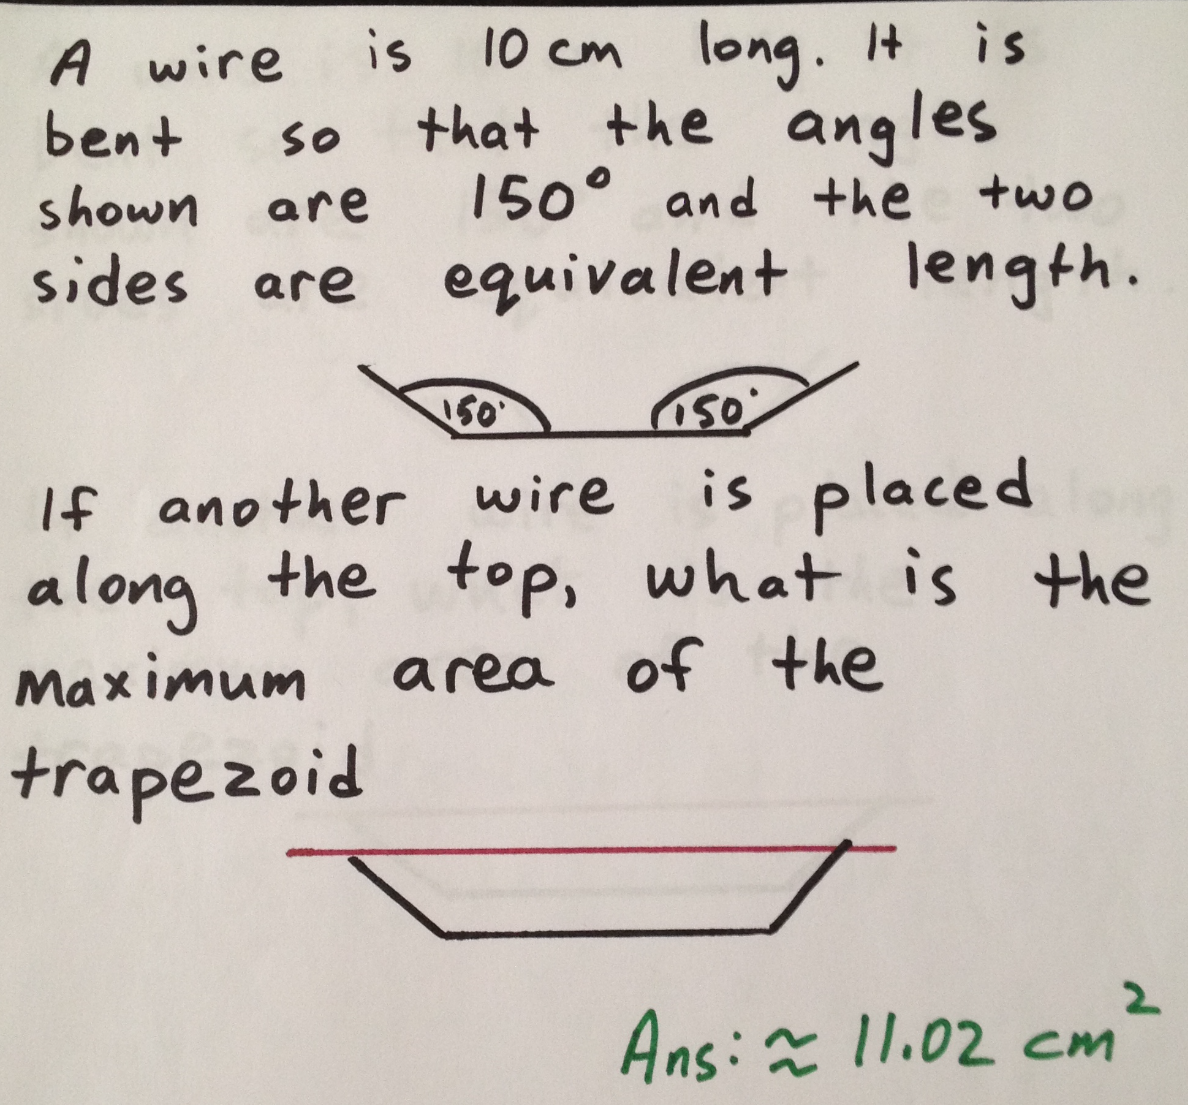 A wire is 10 cm long. It is
bent so that the angles
shown are 150° and the two
sides are equivalent length.
150° 150°
If another wire is placed
along the top, what is the
maximum area of the
trapezoid
Ans: ≈ 11.02 cm²